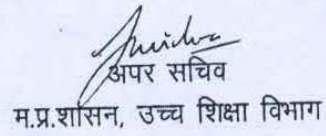 अपर सचिव
म.प्र.शासन, उच्च शिक्षा विभाग